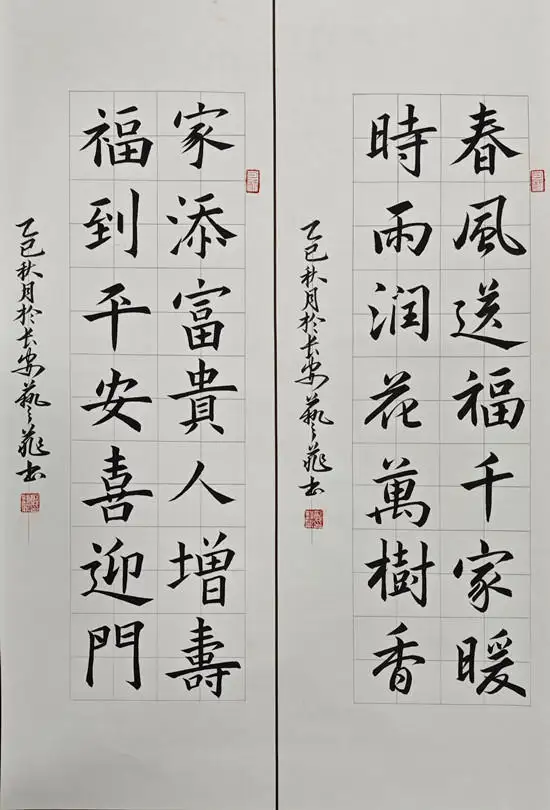 春風送福千家暖
時雨润花萬樹香
乙巳秋月於长安藝
家添富貴人增壽
福到平安喜迎門
乙巳秋月於长安藝